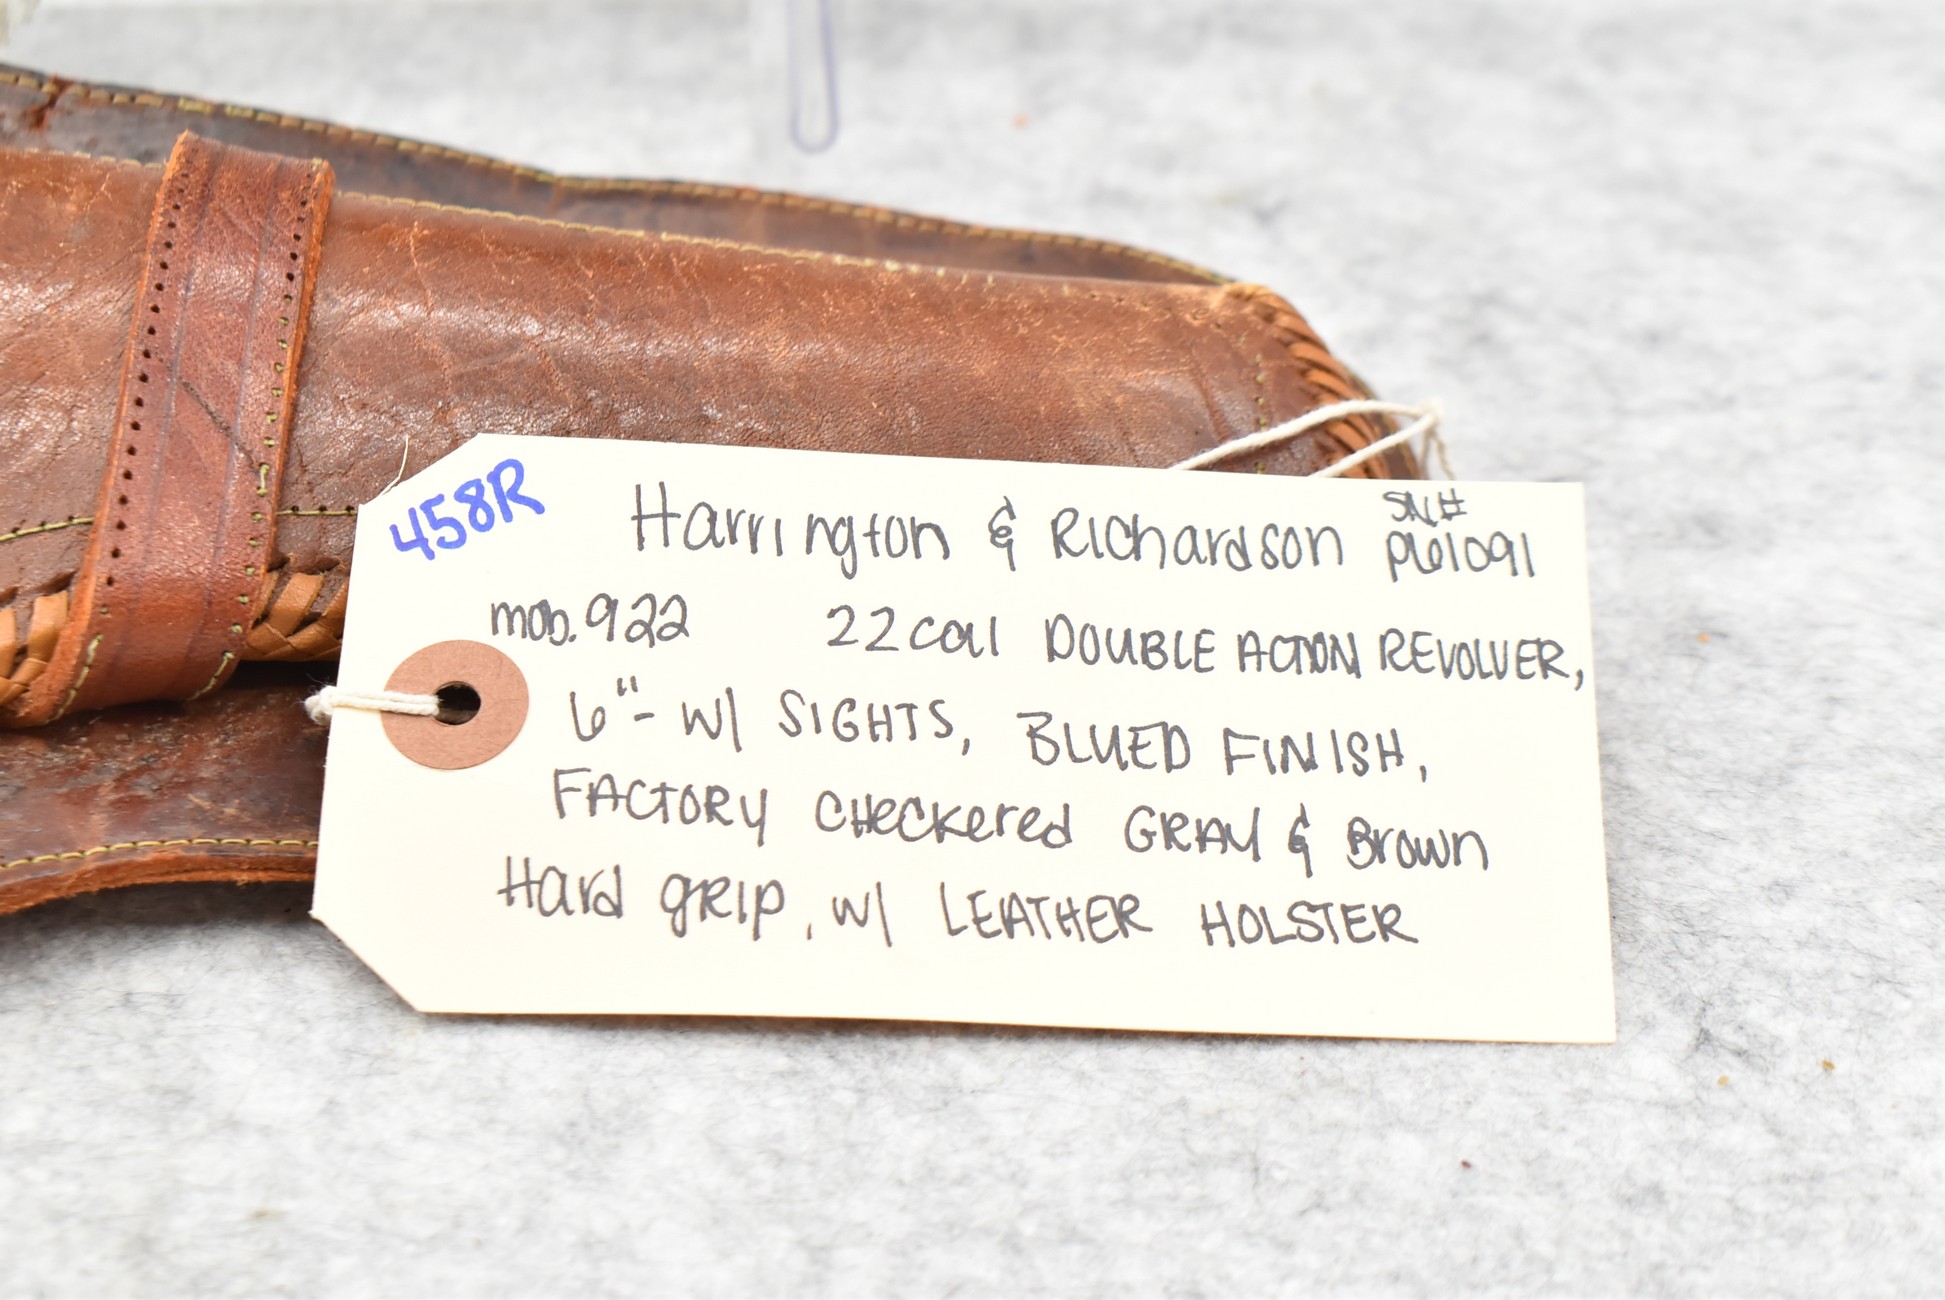 458R
Harrington & Richardson SN#
P61091
mod. 922 22 cal DOUBLE ACTION REVOLVER,
6"- w/ SIGHTS, BLUED FINISH,
FACTORY CHeckered GRAY & Brown
Hard GRIP, w/ LEATHER HOLSTER